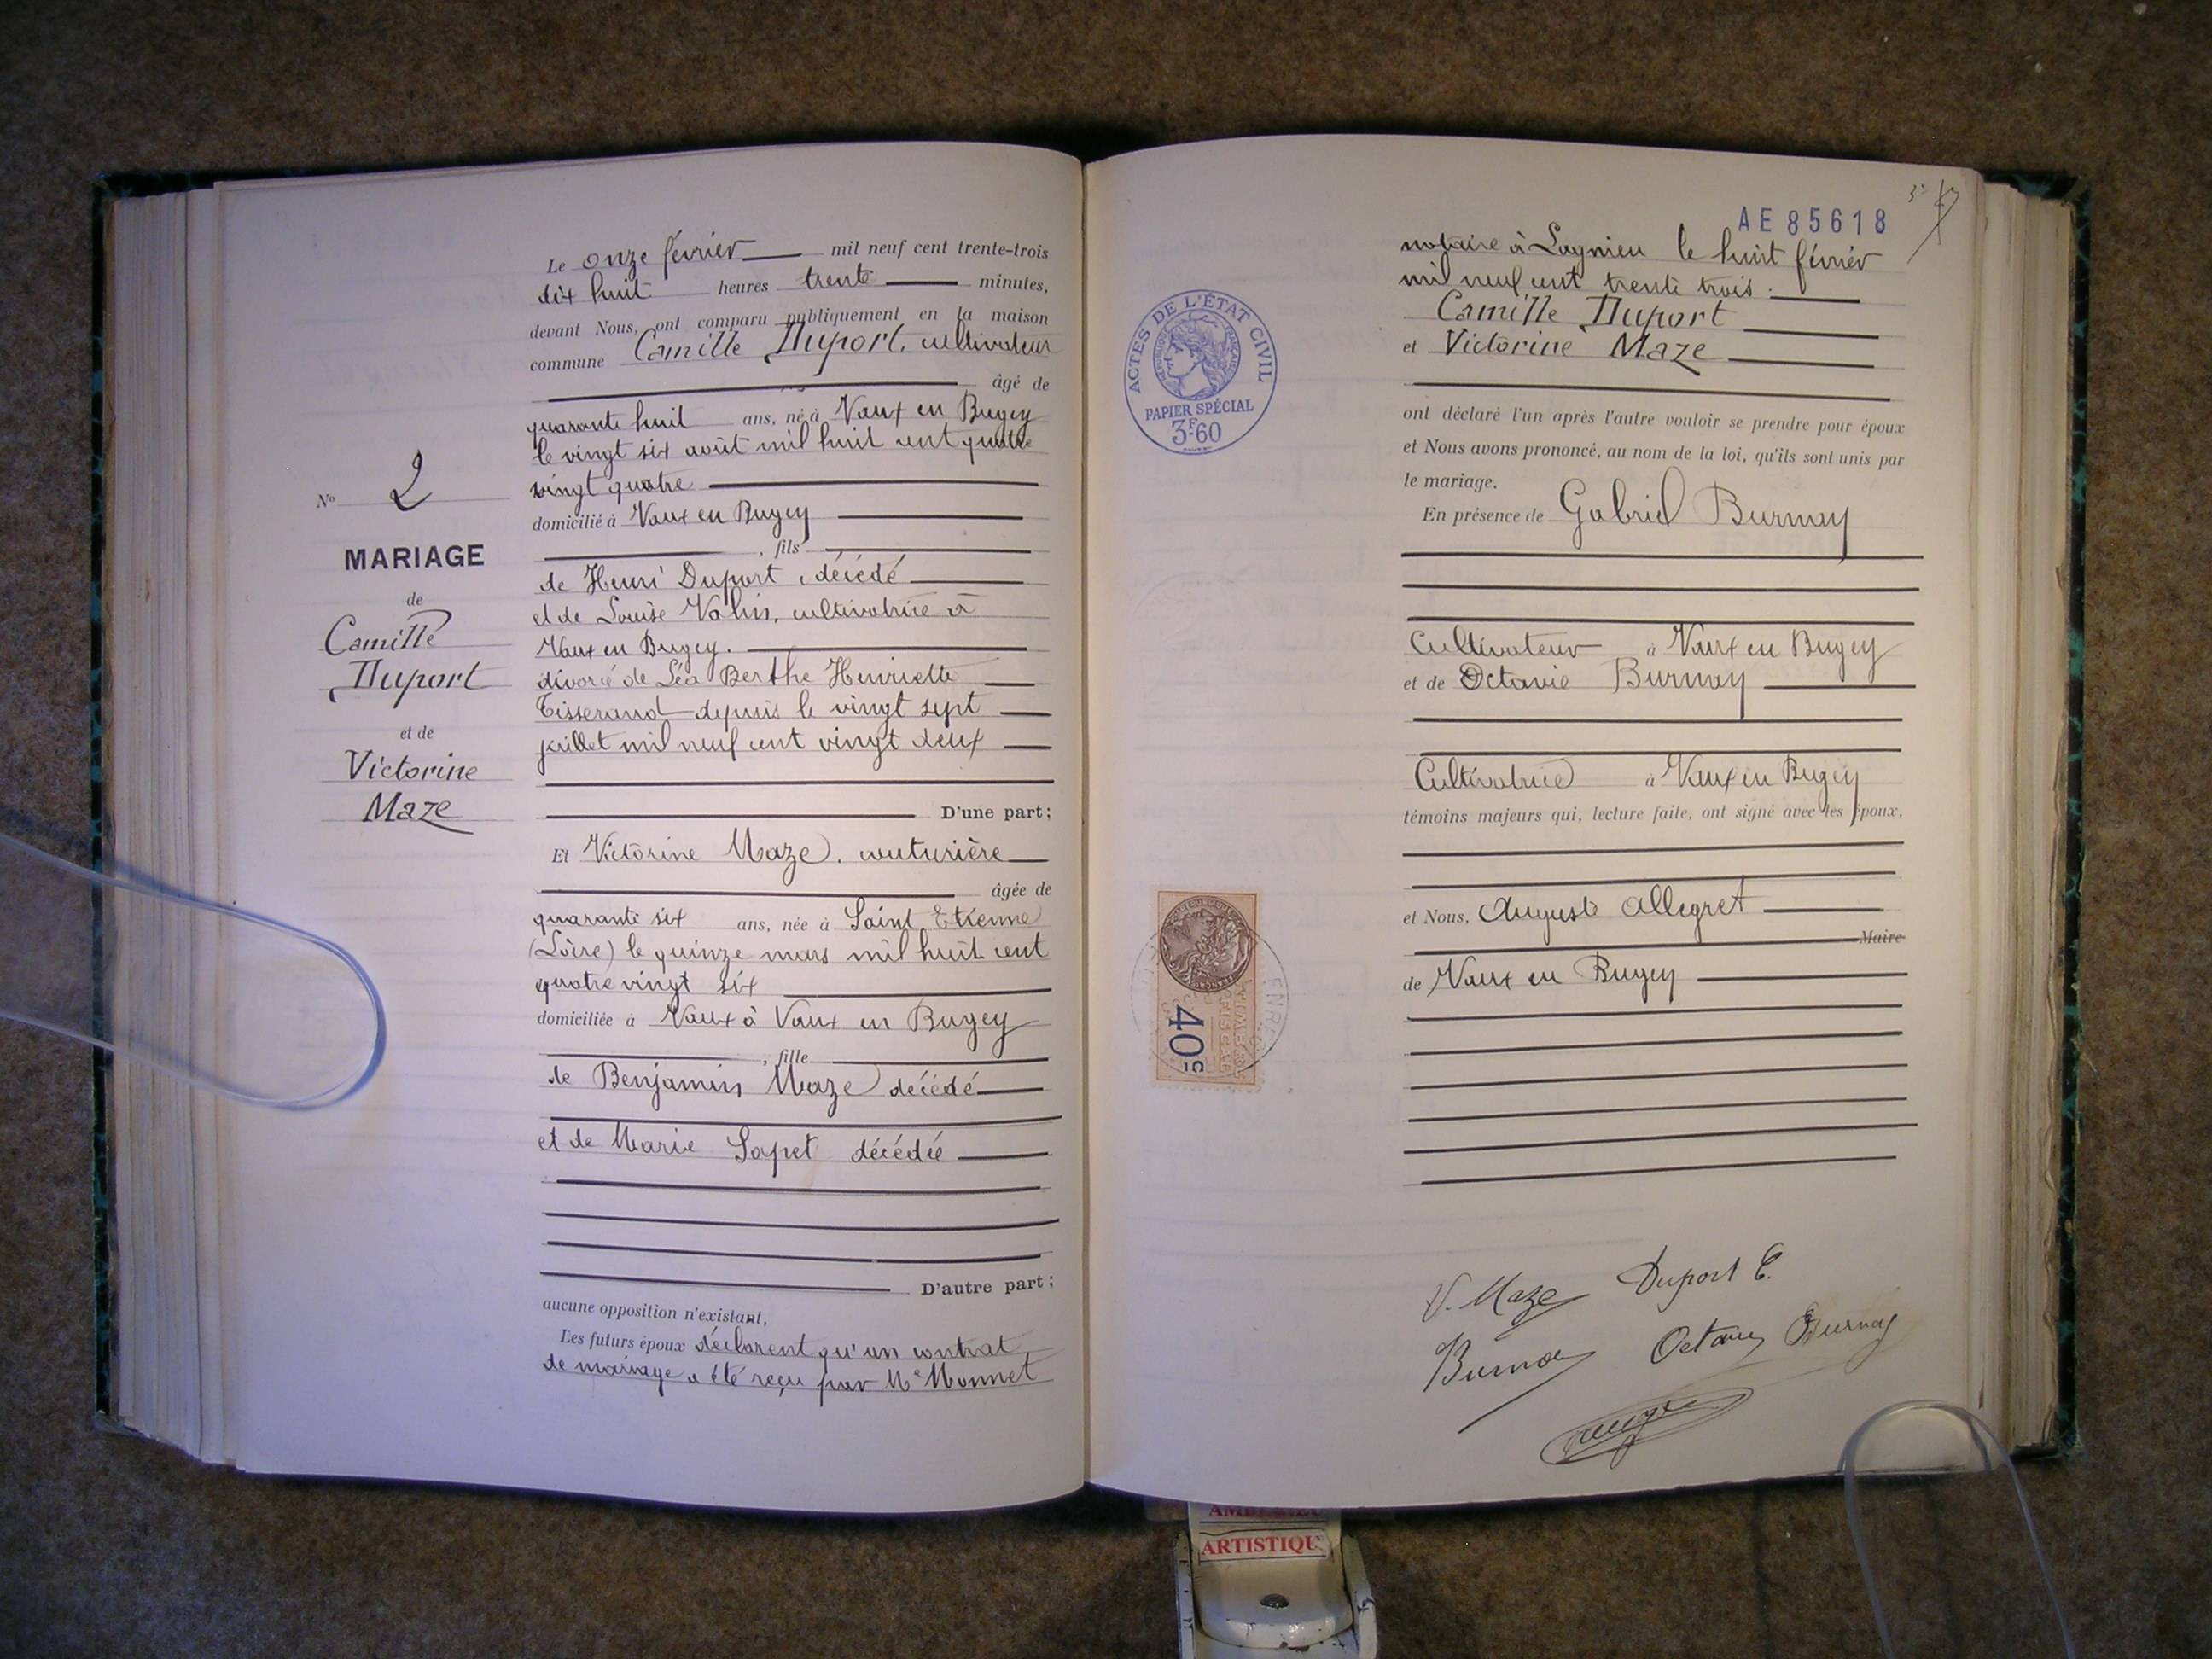 Le onze février mil neuf cent trente-trois
dix huit heures trente minutes,
devant Nous, ont comparu publiquement en la maison
commune Camille Duport, cultivateur
âgé de
quarante huit ans, né à Vaux en Bugey
le vingt six août mil huit cent quatre
vingt quatre
domicilié à Vaux en Bugey
, fils
de Henri Duport, décédé
et de Louise Valin, cultivatrice à
Vaux en Bugey.
divorcé de Léa Berthe Henriette
Tisserand depuis le vingt sept
juillet mil neuf cent vingt deux
D'une part;
Et Victorine Maze, couturière
âgée de
quarante six ans, née à Saint Etienne
(Loire) le quinze mars mil huit cent
quatre vingt six
domiciliée à Vaux à Vaux en Bugey
, fille
de Benjamin Maze décédé
et de Marie Sapet décédée
D'autre part;
aucune opposition n'existant,
Les futurs époux déclarent qu'un contrat
de mariage a été reçu par Me Monnet
No 2
MARIAGE
de
Camille
Duport
et de
Victorine
Maze
AE 85618
notaire à Lagnieu le huit février
mil neuf cent trente trois.
Camille Duport
et Victorine Maze
ont déclaré l'un après l'autre vouloir se prendre pour époux
et Nous avons prononcé, au nom de la loi, qu'ils sont unis par
le mariage.
En présence de Gabriel Burnay
Cultivateur à Vaux en Bugey
et de Octavie Burnay
Cultivatrice à Vaux en Bugey
témoins majeurs qui, lecture faite, ont signé avec les époux,
et Nous, Auguste Allegret
Maire
de Vaux en Bugey
V. Maze Duport C.
Burnay Octavie Burnay
ACTES DE L'ÉTAT CIVIL
PAPIER SPÉCIAL
3F60
40c
ARTISTIQU